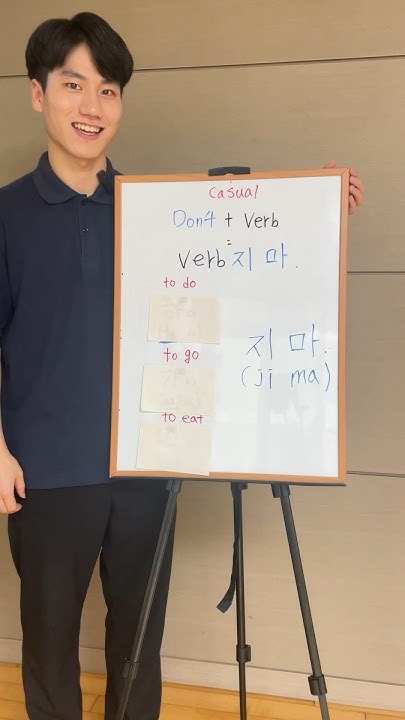 casual
Don't + Verb
=
Verb 지 마.
to do
to go
지 마.
(ji ma)
to eat